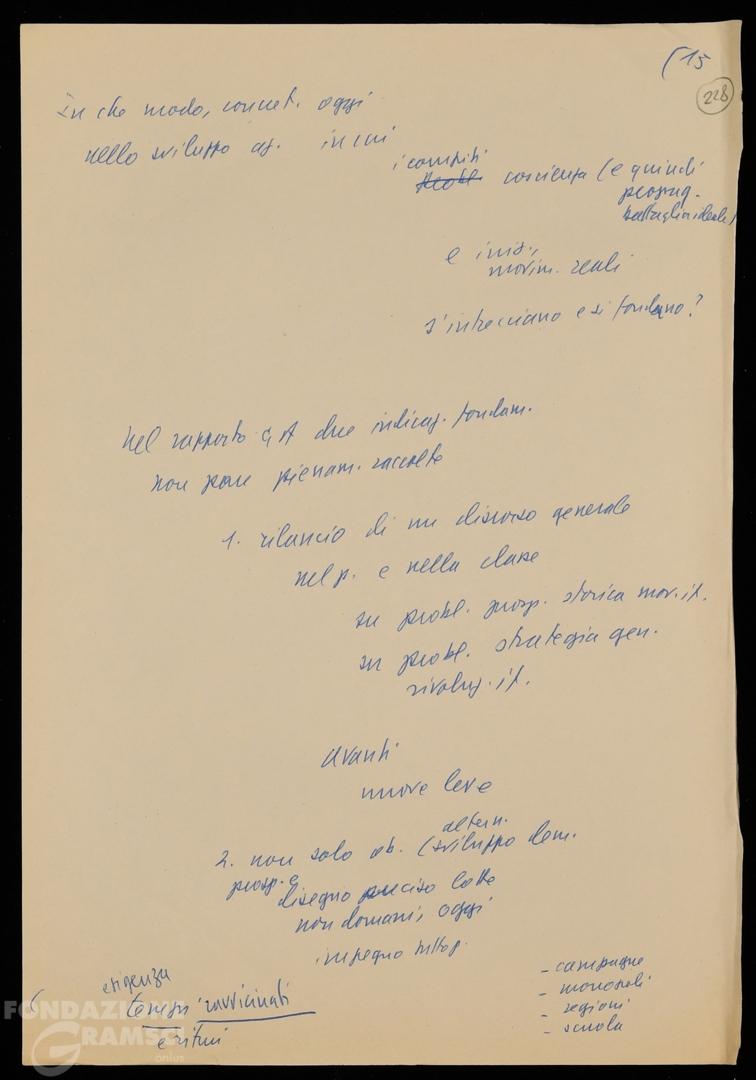 (15
228
In che modo, concret. oggi
nello sviluppo az. in cui
i compiti
Probl. coscienza (e quindi
propag.
battaglia ideale)
e iniz.,
movim. reali
s'intrecciano e si fondano?
Nel rapporto due indicaz. fondam.
non pare pienam. raccolte
1. rilancio di un discorso generale
nel p. e nella classe
su probl. prosp. storica mov. it.
su probl. strategia gen.
rivoluz. it.
avanti
nuove leve
altern.
2. non solo ob. (sviluppo dem.
prosp. e
disegno preciso lotte
non domani, oggi
impegno tutto p.
esigenza
tempi ravvicinati
e ritmi
- campagne
- monopoli
- regioni
- scuola
FONDAZIONE
GRAMSCI
onlus